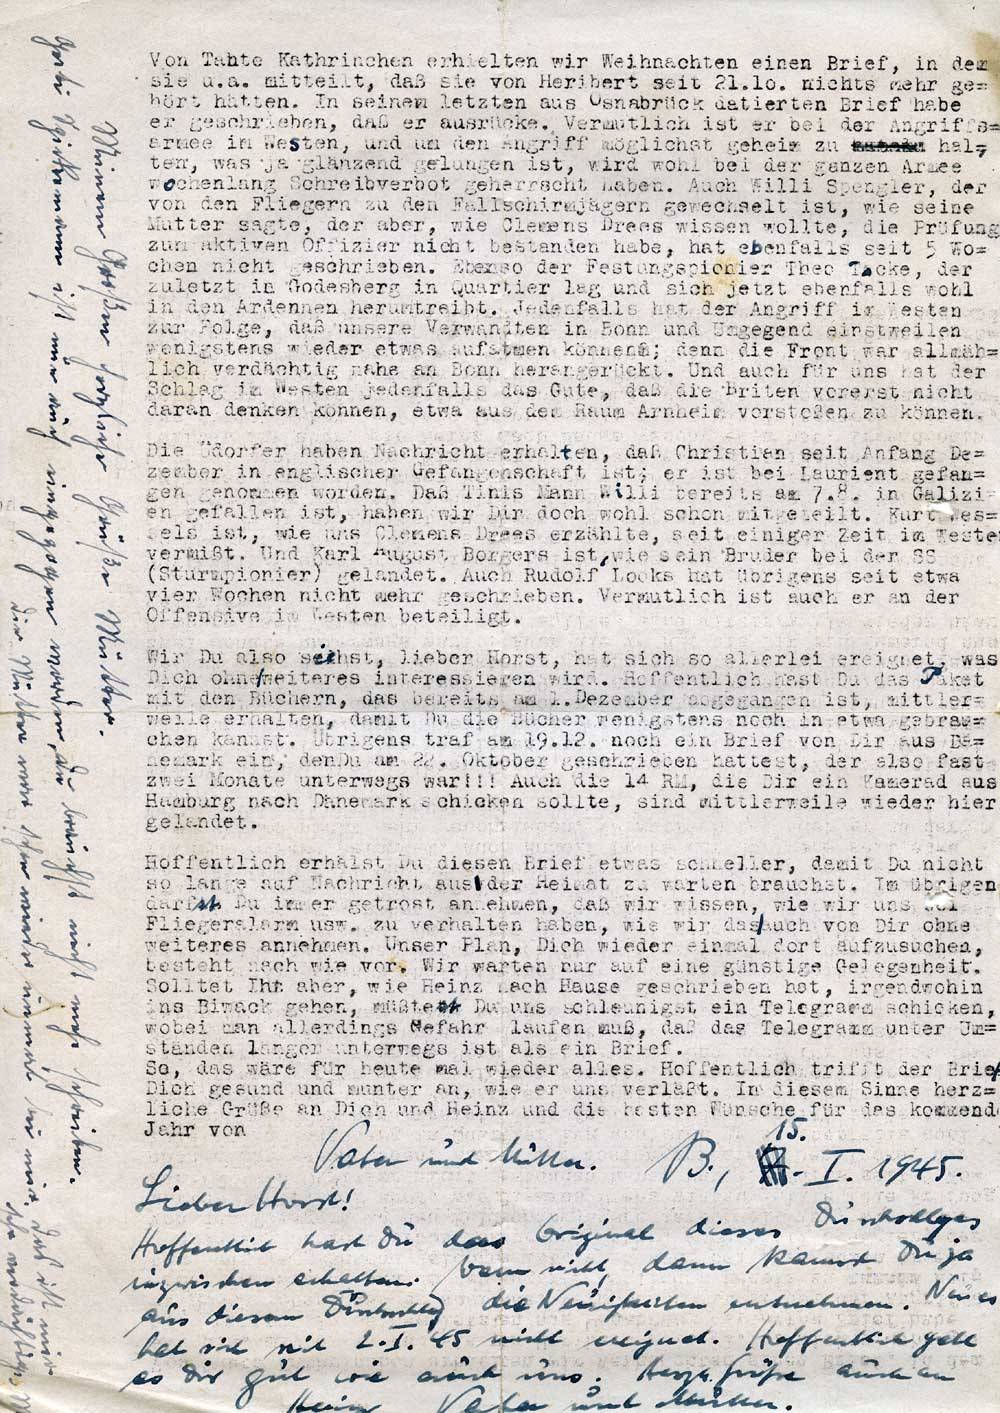 Von Tahte Kathrinchen erhielten wir Weihnachten einen Brief, in dem
sie u.a. mitteilt, daß sie von Heribert seit 21.10. nichts mehr ge=
hört hätten. In seinem letzten aus Osnabrück datierten Brief habe
er geschrieben, daß er ausrücke. Vermutlich ist er bei der Angriffs=
armee im Westen, und um den Angriff möglichst geheim zu hal=
ten, was ja glänzend gelungen ist, wird wohl bei der ganzen Armee
wochenlang Schreibverbot geherrscht haben. Auch Willi Spengler, der
von den Fliegern zu den Fallschirmjägern gewechselt ist, wie seine
Mutter sagte, der aber, wie Clemens Drees wissen wollte, die Prüfung
zum aktiven Offizier nicht bestanden habe, hat ebenfalls seit 5 Wo=
chen nicht geschrieben. Ebenso der Festungspionier Theo Tacke, der
zuletzt in Godesberg in Quartier lag und sich jetzt ebenfalls wohl
in den Ardennen herumtreibt. Jedenfalls hat der Angriff im Westen
zur Folge, daß unsere Verwandten in Bonn und Umgegend einstweilen
wenigstens wieder etwas aufatmen können; denn die Front war allmäh=
lich verdächtig nahe an Bonn herangerückt. Und auch für uns hat der
Schlag im Westen jedenfalls das Gute, daß die Briten vorerst nicht
daran denken können, etwa aus dem Raum Arnheim vorstoßen zu können.
Die Üdorfer haben Nachricht erhalten, daß Christian seit Anfang De=
zember in englischer Gefangenschaft ist; er ist bei Laurient gefan=
gen genommen worden. Daß Tinis Mann Willi bereits am 7.8. in Galizi=
en gefallen ist, haben wir Dir doch wohl schon mitgeteilt. Kurt Wes=
sels ist, wie uns Clemens Drees erzählte, seit einiger Zeit im Westen
vermißt. Und Karl August Borgers ist, wie sein Bruder bei der SS
(Sturmpionier) gelandet. Auch Rudolf Looks hat übrigens seit etwa
vier Wochen nicht mehr geschrieben. Vermutlich ist auch er an der
Offensive im Westen beteiligt.
Wir Du also siehst, lieber Horst, hat sich so allerlei ereignet, was
Dich ohne weiteres interessieren wird. Hoffentlich hast Du das Paket
mit den Büchern, das bereits am 1. Dezember abgegangen ist, mittler=
weile erhalten, damit Du die Bücher wenigstens noch in etwa gebrau=
chen kannst. Übrigens traf am 19.12. noch ein Brief von Dir aus Dä=
nemark ein, denDu am 22. Oktober geschrieben hattest, der also fast
zwei Monate unterwegs war!!! Auch die 14 RM, die Dir ein Kamerad aus
Hamburg nach Dänemark schicken sollte, sind mittlerweile wieder hier
gelandet.
Hoffentlich erhälst Du diesen Brief etwas schneller, damit Du nicht
so lange auf Nachricht aus der Heimat zu warten brauchst. Im übrigen
darfst Du immer getrost annehmen, daß wir wissen, wie wir uns bei
Fliegeralarm usw. zu verhalten haben, wie wir das auch von Dir ohne
weiteres annehmen. Unser Plan, Dich wieder einmal dort aufzusuchen,
besteht nach wie vor. Wir warten nur auf eine günstige Gelegenheit.
Solltet Ihr aber, wie Heinz nach Hause geschrieben hat, irgendwohin
ins Biwack gehen, müßtest Du uns schleunigst ein Telegramm schicken,
wobei man allerdings Gefahr laufen muß, daß das Telegramm unter Um=
ständen länger unterwegs ist als ein Brief.
So, das wäre für heute mal wieder alles. Hoffentlich trifft der Brief
Dich gesund und munter an, wie er uns verläßt. In diesem Sinne herz=
liche Grüße an Dich und Heinz und die besten Wünsche für das kommende
Jahr von
Vater und Mutter. B., 15. I. 1945.
Lieber Horst!
Hoffentlich hast Du das Original dieses Durchschlages
inzwischen erhalten. Wenn nicht, dann kannst Du ja
aus diesem Durchschlag die Neuigkeiten entnehmen. Neues
hat sich seit 2.I.45 nicht ereignet. Hoffentlich geht
es Dir gut wie auch uns. Herzl. Grüße auch an
Heinz Vater und Mutter.
Meinem Großen herzliche Grüße Mutter.
ist nun auch eingezogen worden, Du brauchst nicht mehr schreiben.